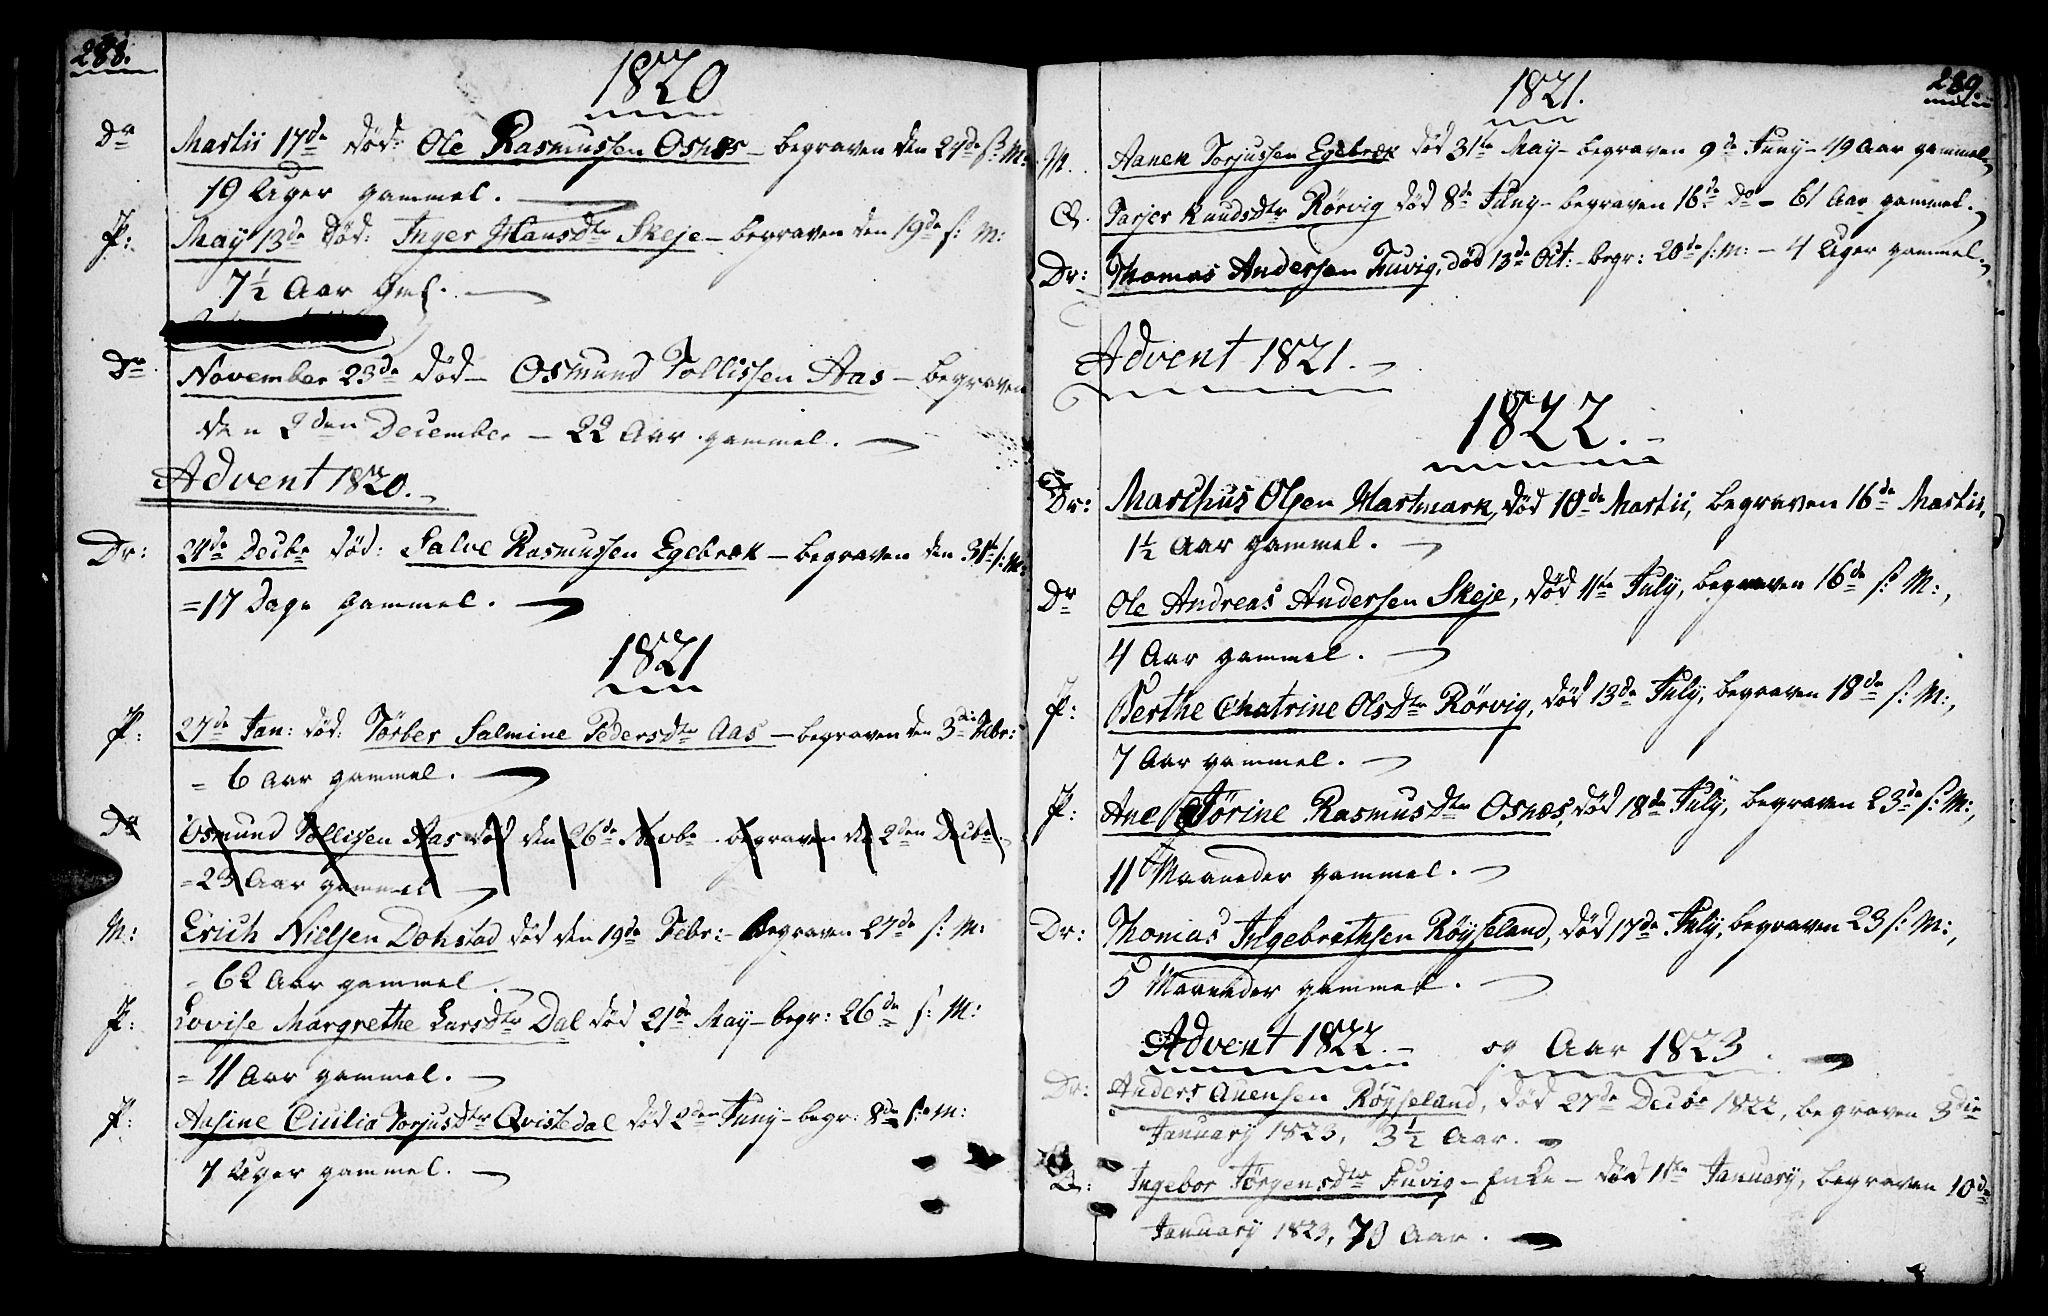 288.
1820
Dr Martii 17de død: Ole Rasmussen Osnes – begraven den 24de s: M:
19 Uger gammel.
P: May 13de død: Inger Hansdtr Skeje – begraven den 19de s: M:
7½ Aar gml.
Dr November 23de død – Osmund Tollissen Aas – begraven
den 2den December – 22 Aar gammel.
Advent 1820.
Dr: 24de Decbr død: Salve Rasmussen Egebræk – begraven den 31te s: M:
= 17 Dage gammel.
1821
P: 27de Jan: død: Tørber Salmine Pedersdtr Aas – begraven den 3die Febr:
= 6 Aar gammel.
Dr Osmund Tollissen Aas død den 26de Novbr – begraven den 2den Decbr.
= 23 Aar gammel
M: Erich Nielsen Dohstad død den 19de Febr: – Begraven 24de s: M:
– 62 Aar gammel
P: Lovise Margrethe Larsdtr Dal død 21de May – begr: 26de s: M:
= 11 Aar gammel.
P: Ansine Cicilia Torjusdtr Qvistedal død 2den Juny – begr: 8de s: M:
7 Uger gammel.
289.
1821.
M. Aanen Torjussen Egebræk død 31te May – begraven 9de Juny – 49 Aar gammel
Q. Tarjer Knudsdtr Rörvig død 8de Juny – begraven 16de Do – 61 Aar gammel.
Dr: Thomas Andersen Fuvig, død 13de Oct: – begr: 20de s: M: – 4 Uger gammel.
Advent 1821.
1822.
Dr: Marthus Olsen Hartmark, død 10de Martii, begraven 16de Martii,
1½ Aar gammel.
Dr Ole Andreas Andersen Skeje, død 11te July, begraven 16de s: M:,
4 Aar gammel.
P: Berthe Chatrine Olsdtr Rörvig, død 13de July, begraven 18de s: M:,
7 Aar gammel.
P: Ane Jörine Rasmusdtr Osnæs, død 18de July, begraven 23de s: M:,
11 Maaneder gammel.
Dr: Thomas Ingebrethsen Röyseland, død 17de July, begraven 23 s: M:,
5 Maaneder gammel.
Advent 1822. – og Aar 1823.
Dr: Anders Auensen Röyseland, død 27de Decbr 1822, begraven 3die
January 1823, 3½ Aar.
Q: Ingebor Jörgensdtr Fuvig – Enke – død 1ste January, begraven 10de
January 1823, 79 Aar.